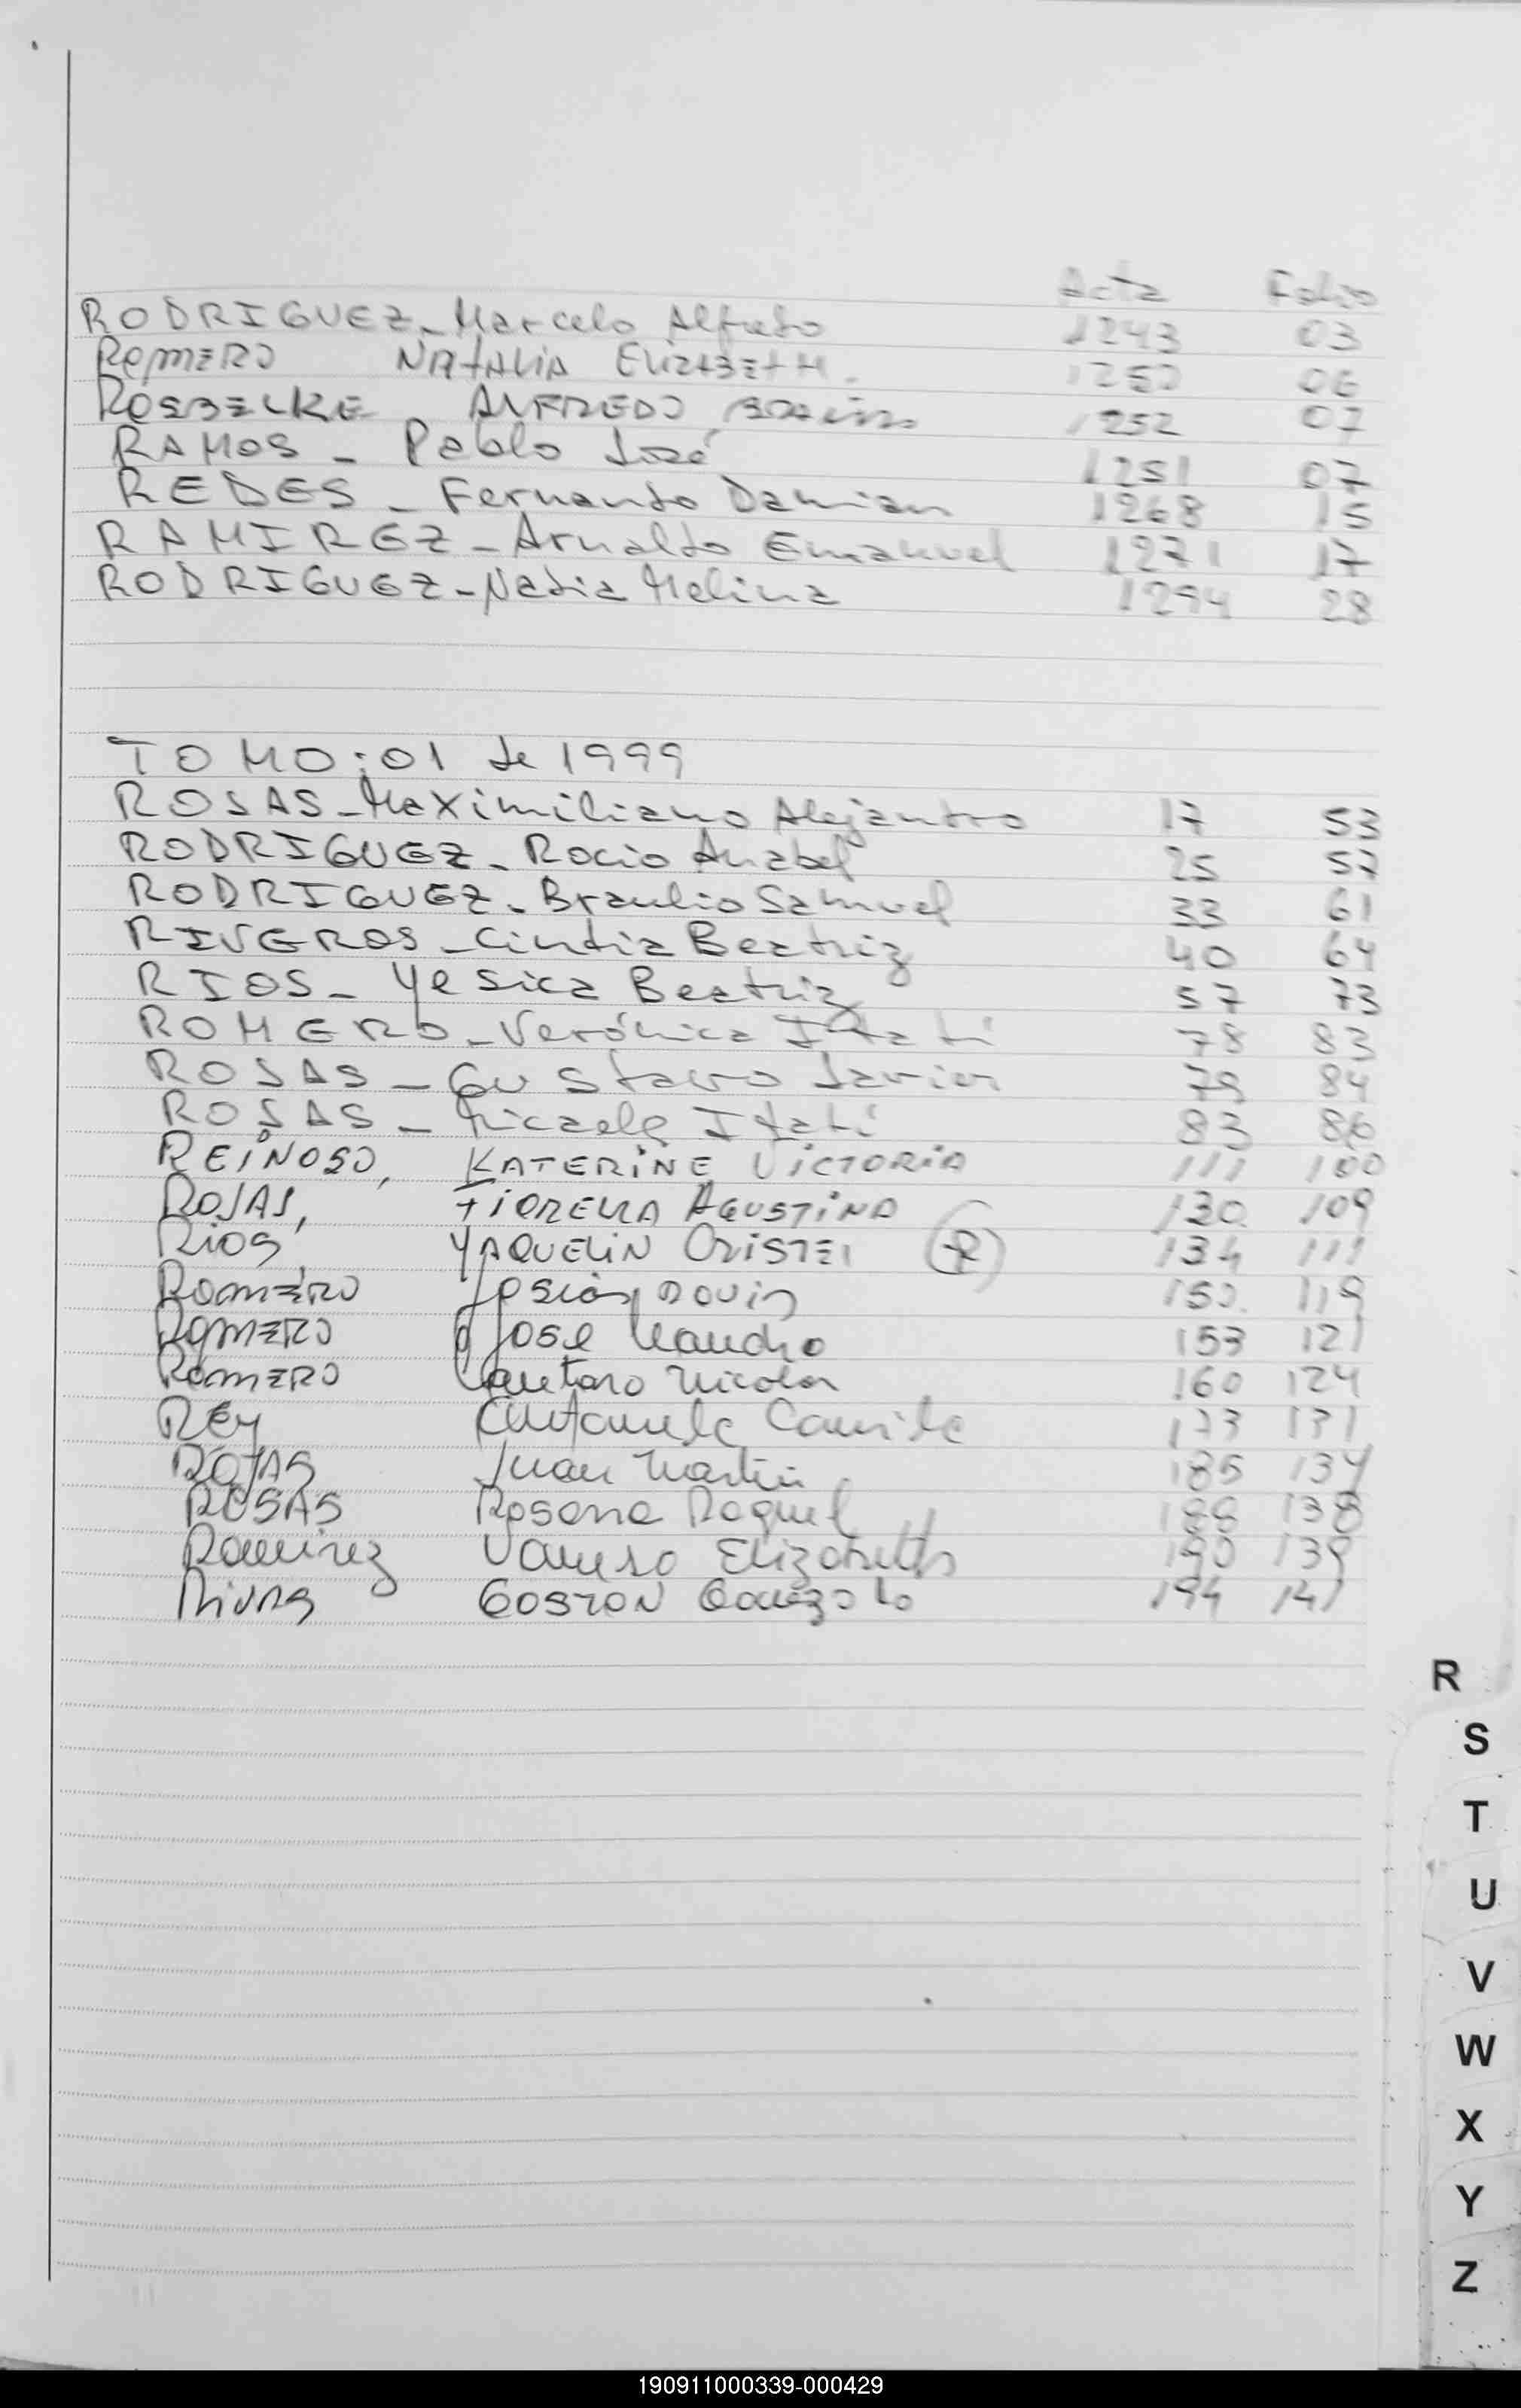 Acta Folio
RODRIGUEZ - Marcelo Alfredo 1243 03
Romero NATALIA ELIZABETH. 1250 06
ALFREDO 1252 07
RAMOS - Pablo José 1251 07
REDES - Fernando Damian 1268 15
RAMIREZ - Arnaldo Emanuel 1271 17
RODRIGUEZ - Nadia Melina 1294 28
TOMO: 01 de 1999
ROSAS - Maximiliano Alejandro 17 53
RODRIGUEZ - Rocio Anabel 25 57
RODRIGUEZ - Braulio Samuel 33 61
RIVEROS - Cintia Beatriz 40 64
RIOS - Yesica Beatriz 57 73
ROMERO - Verónica Itatí 78 83
ROSAS - Gustavo Javier 79 84
ROSAS - Micaela Itatí 83 86
REINOSO, KATERINE VICTORIA 111 100
ROJAS, FIORELLA AGUSTINA 130 109
Rios, YAQUELIN 134 111
Romero 150. 119
Romero Jose Leandro 153 121
Romero Lautaro Nicolas 160 124
Rey Antonela Camila 173 131
ROJAS Juan Martin 185
ROSAS Rosana Raquel 188 138
Ramirez Vanesa Elizabeth 190 139
Rivas GASTON Gonzalo 194 141
R
S
T
U
V
W
X
Y
Z
190911000339-000429